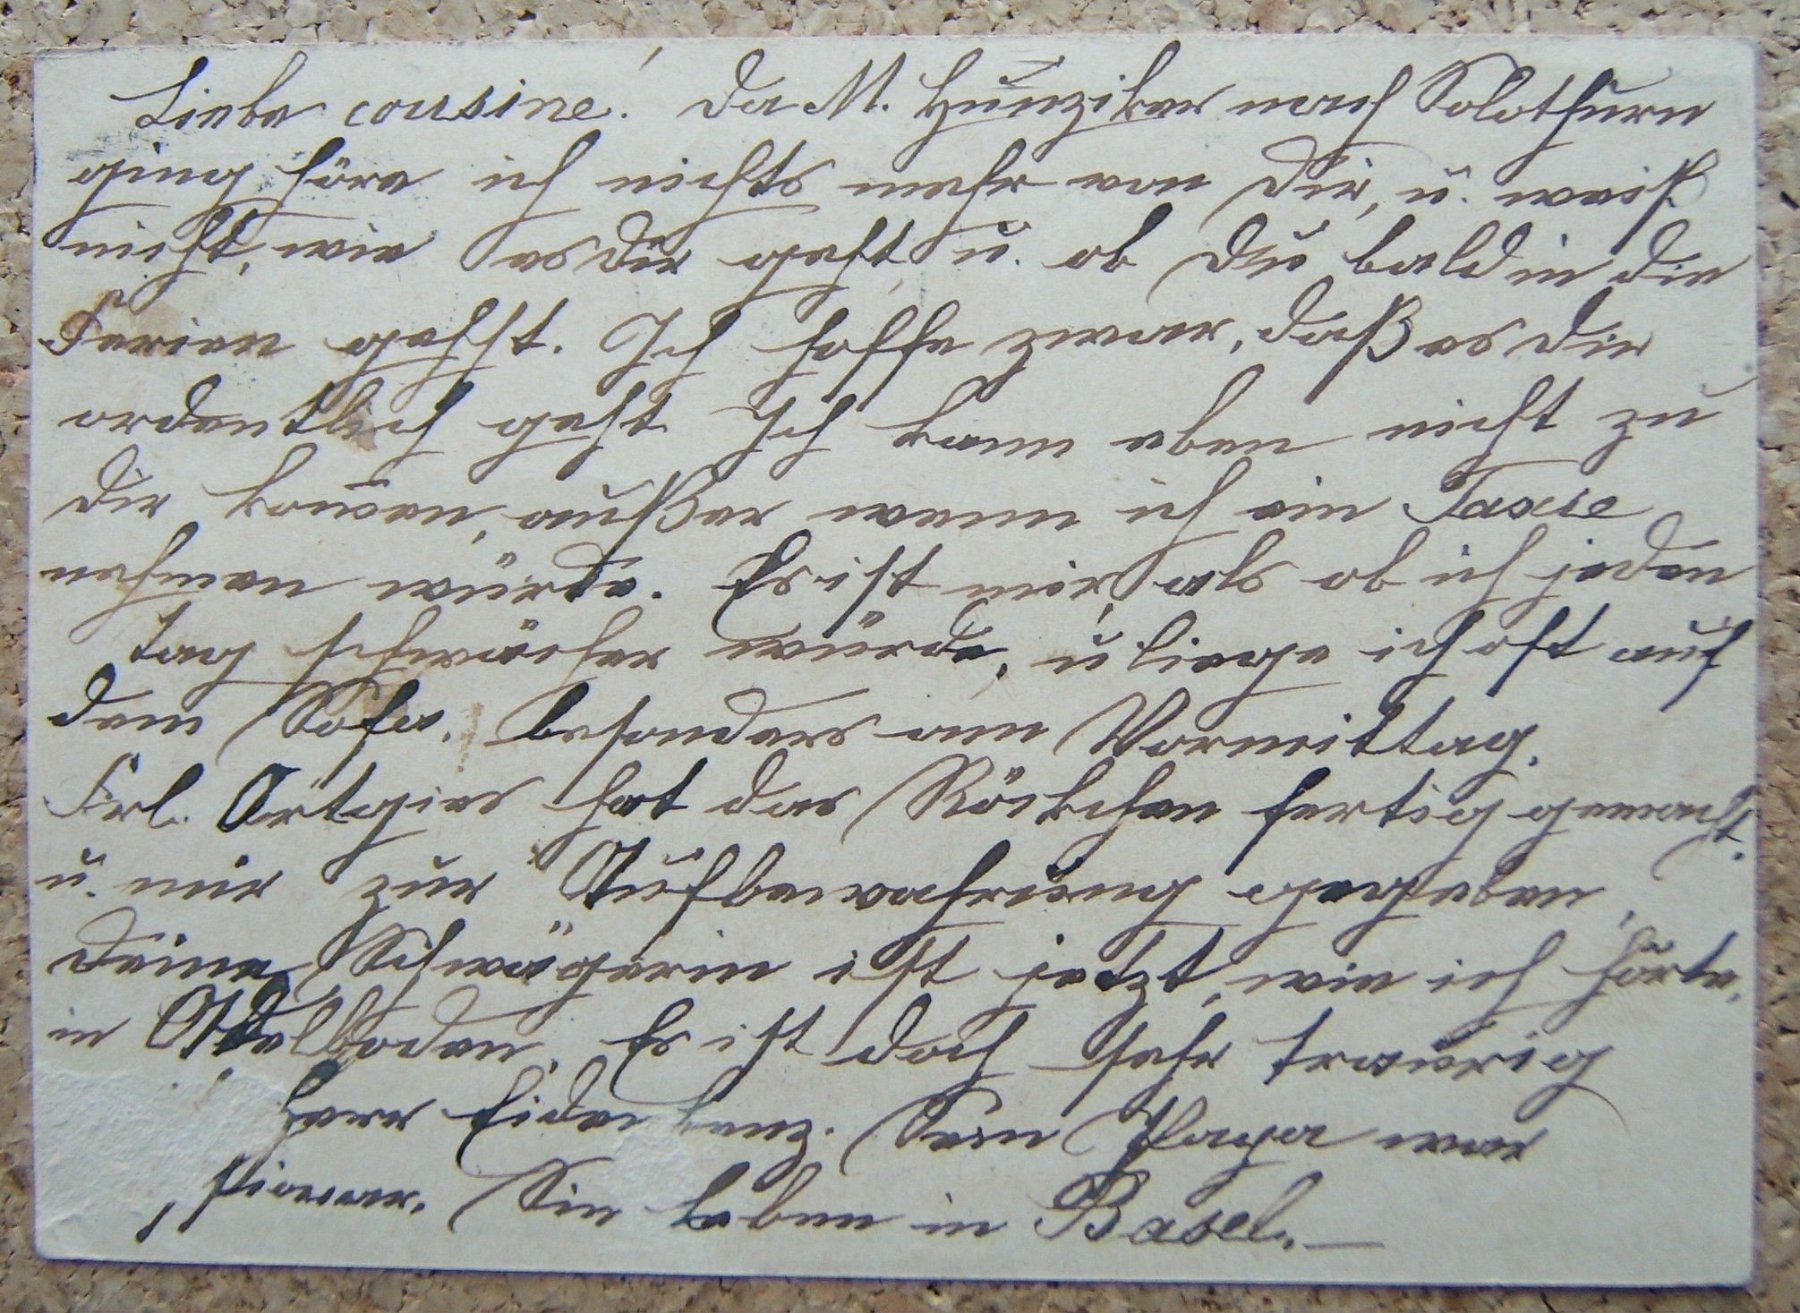 Liebe cousine! Da M. Hunziker nach Solothurn
ging höre ich nichts mehr von Dir, u. weiß
nicht, wie es Dir geht u. ob Du bald in die
Ferien gehst. Ich hoffe zwar, daß es Dir
ordentlich geht. Ich kann eben nicht zu
Dir kom̄en, außer wenn ich ein Taxie
nehmen würde. Es ist mir, als ob ich jeden
Tag schwächer würde, u liege ich oft auf
dem Sofa, besonders am Vormittag.
Frl. hat das Röckchen fertig gemacht.
u. mir zur Aufbewahrung gegeben,
Deine Schwägerin ist jetzt, wie ich hörte,
in Adelboden. Es ist doch sehr traurig
Herr Eidenbenz. Sein Papa war
Sie leben in Basel. —